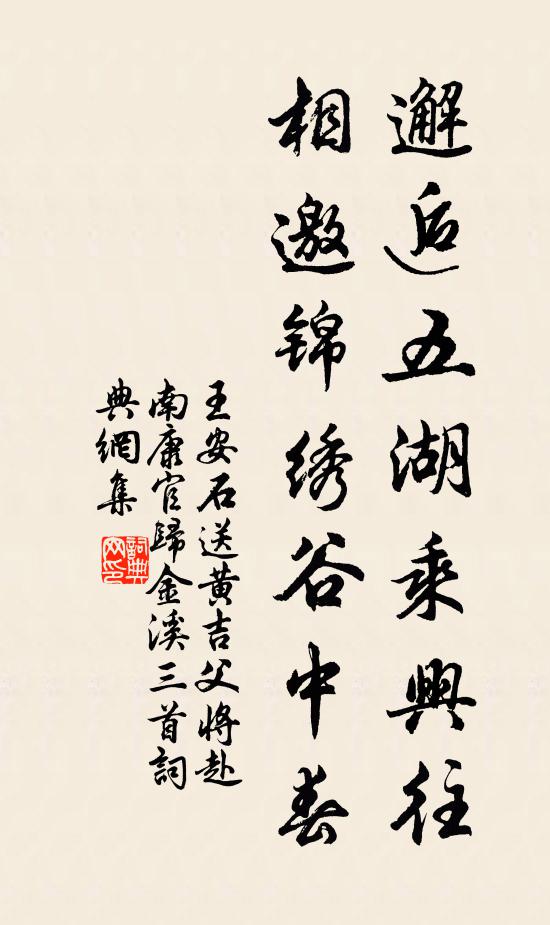 邂逅五湖乘興往
相邀锦绣谷中春
王安石送黄吉父将赴
南康官歸金溪三首詞
典網集
詞典
网印